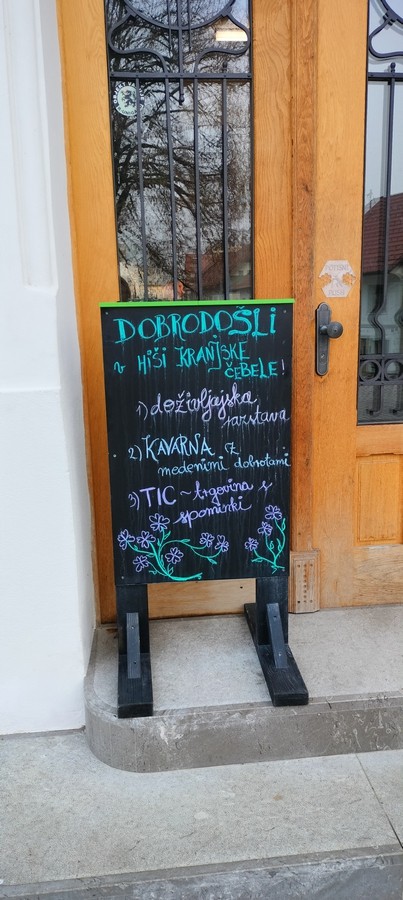 DOBRODOŠLI
v HIŠI KRANJSKE
ČEBELE!
1) doživljajska
razstava
2) KAVARNA z
medenimi dobrotami
3) TIC ~ trgovina s
spominki